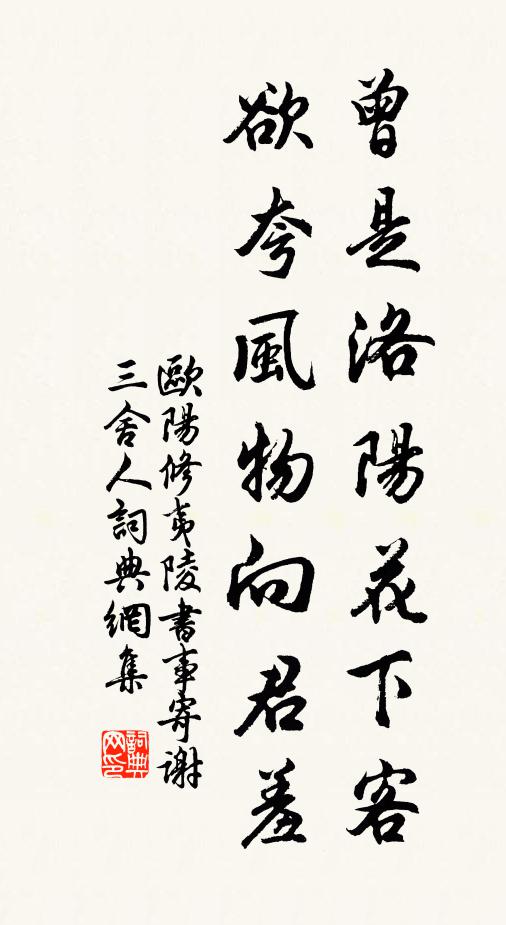 曾是洛陽花下客
欲夸風物向君羞
歐陽修夷陵書事寄謝
三舍人詞典網集
詞典
网印